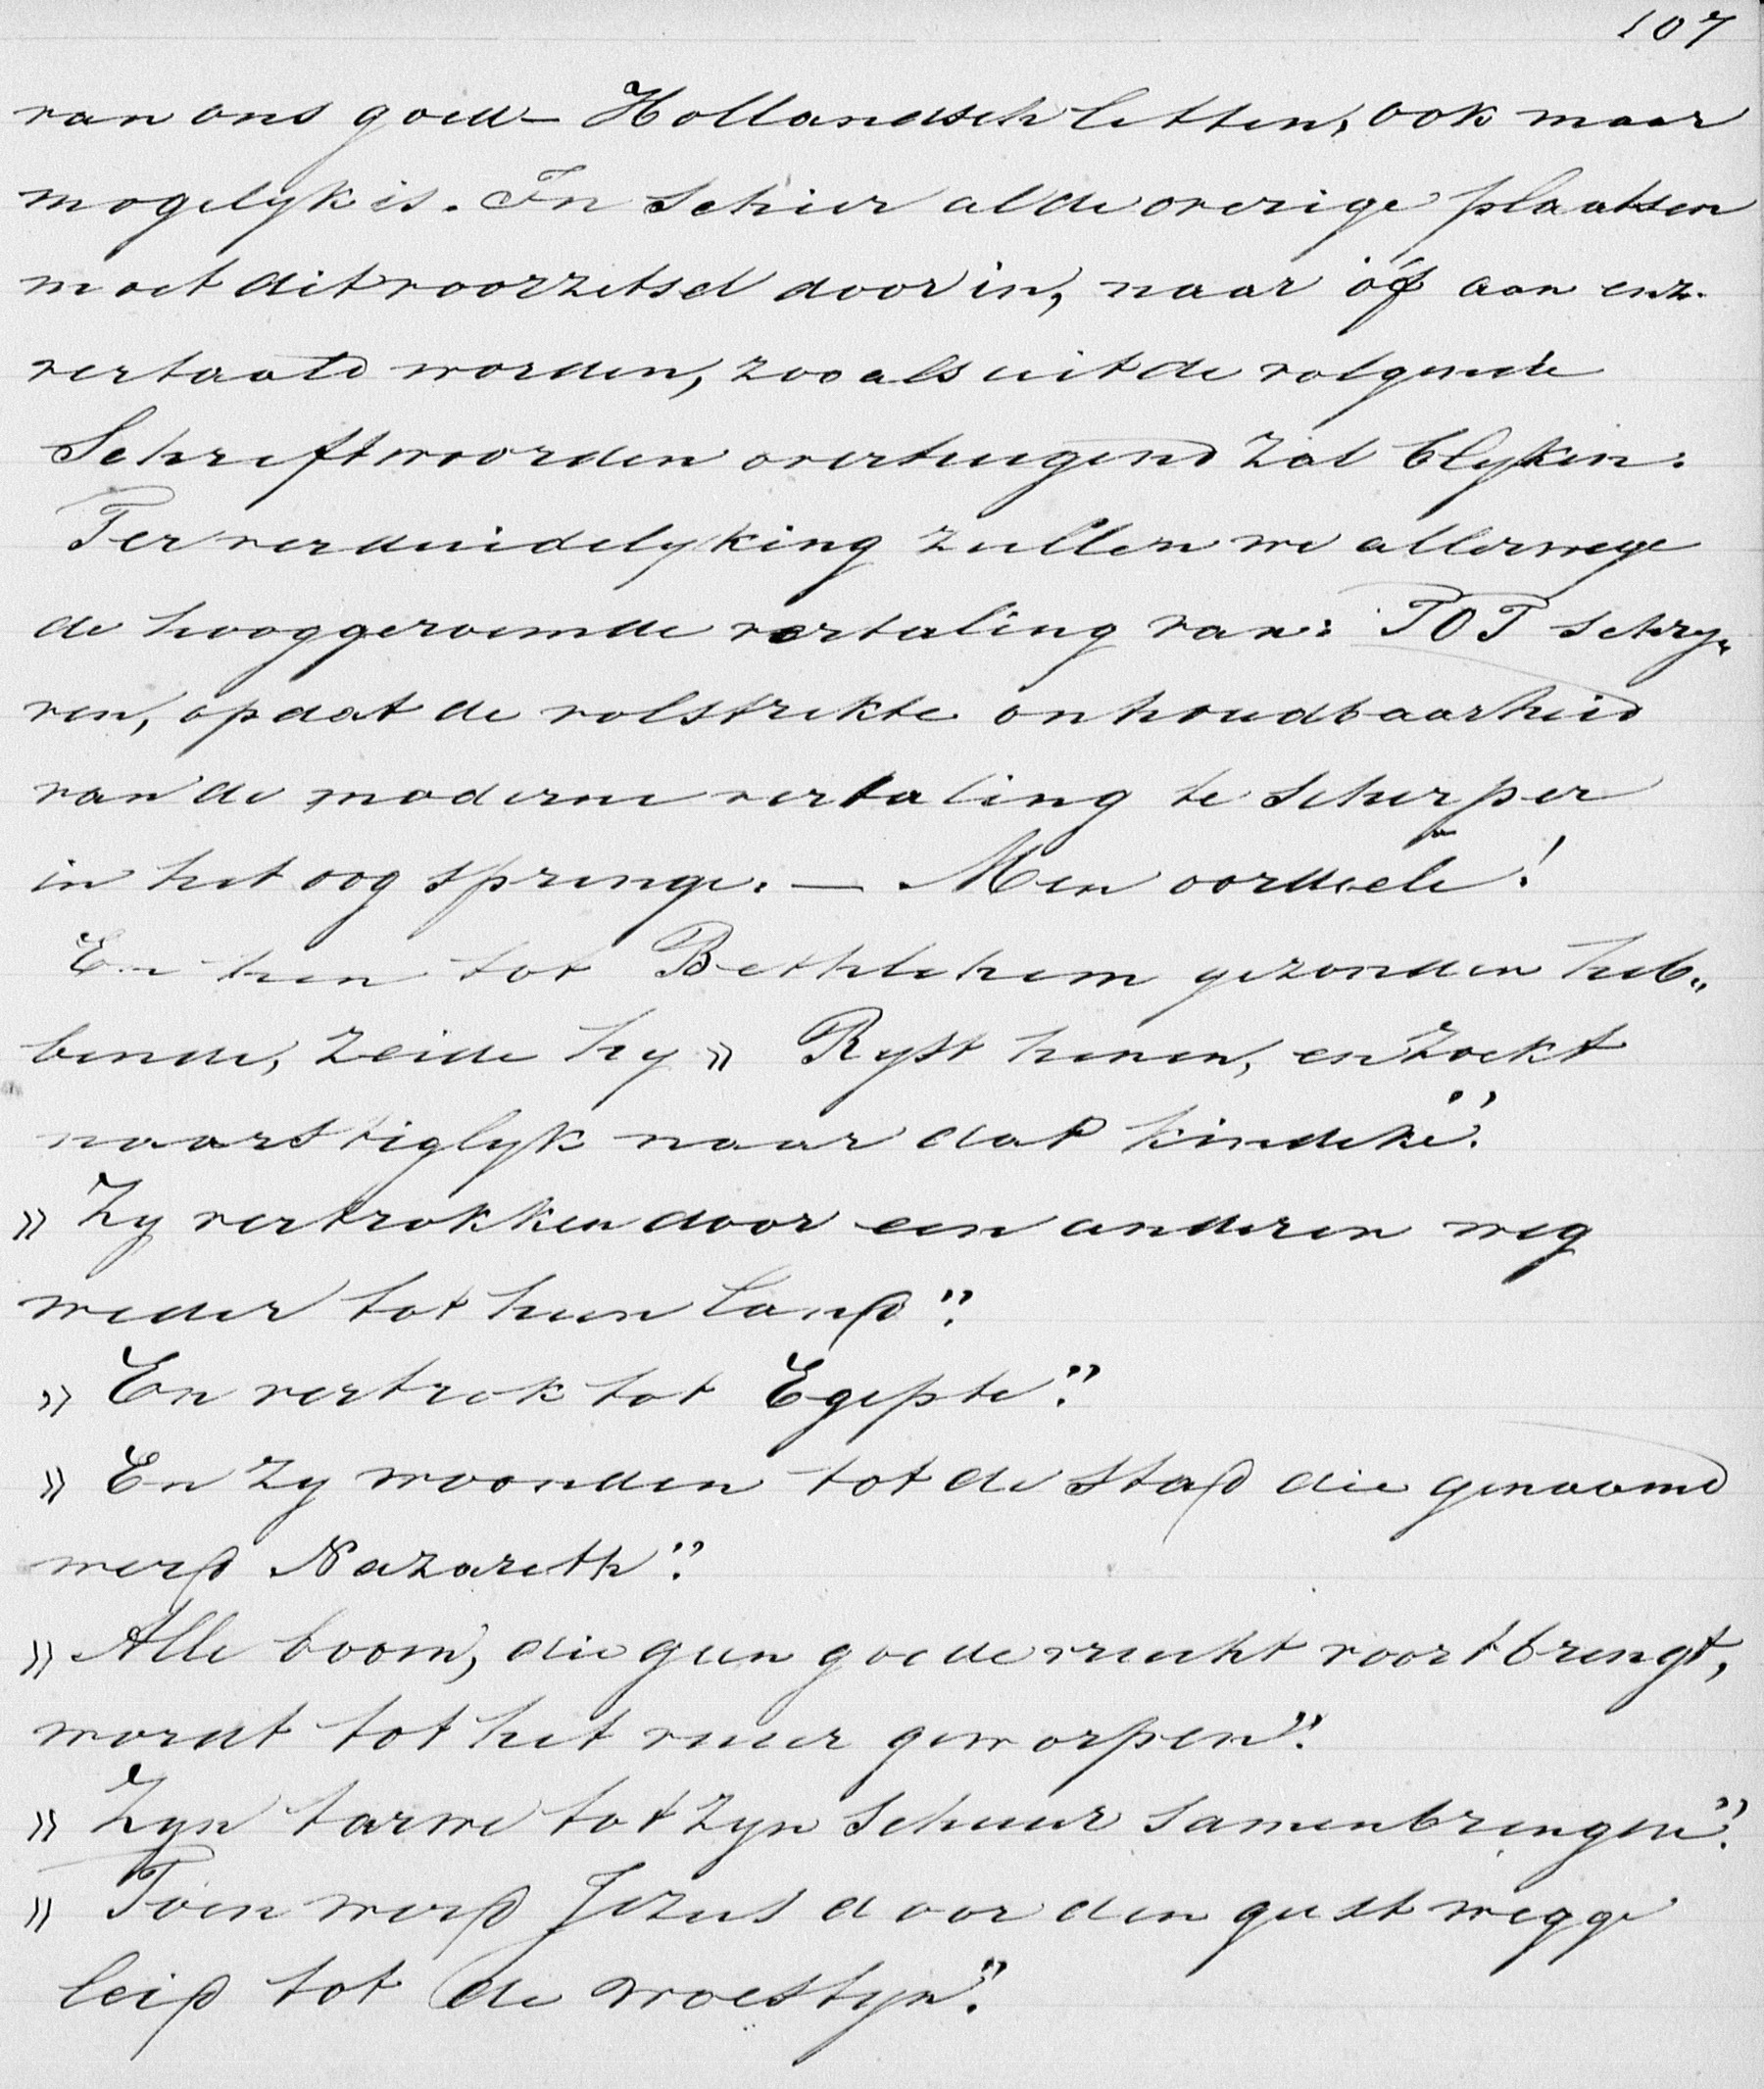 107
van ons goed- Hollandsch letten, ook maar
mogelyk is. In schier al de overige plaatsen
moet dit voorzetsel door in, naar óf aan enz.
vertaald worden, zooals uit de volgende
Schriftwoorden overtuigend zal blyken:
Ter verduidelyking zullen we allerwege
de hooggeroemde vertaling van: TOT schry„
ven, opdat de volstrekte onhoudbaarheid
van de moderne vertaling te scherper
in het oog springe. — Men oordeele!
En hen tot Bethlehem gezonden heb„
bende, zeide hy » Ryst henen, en zoekt
naarstiglyk naar dat kindeke".
» Zy vertrokken door een anderen weg
weder tot hun land".
» En vertrok tot Egipte".
» En zy woonden tot de stad die genaamd
werd Nazareth".
» Alle boom, die geen goede vrucht voortbrengt,
wordt tot het vuur geworpen".
» Zyn tarwe tot zyn schuur samenbrengen".
» Toen werd Jezus door den geest wegge
leid tot de woestyn".